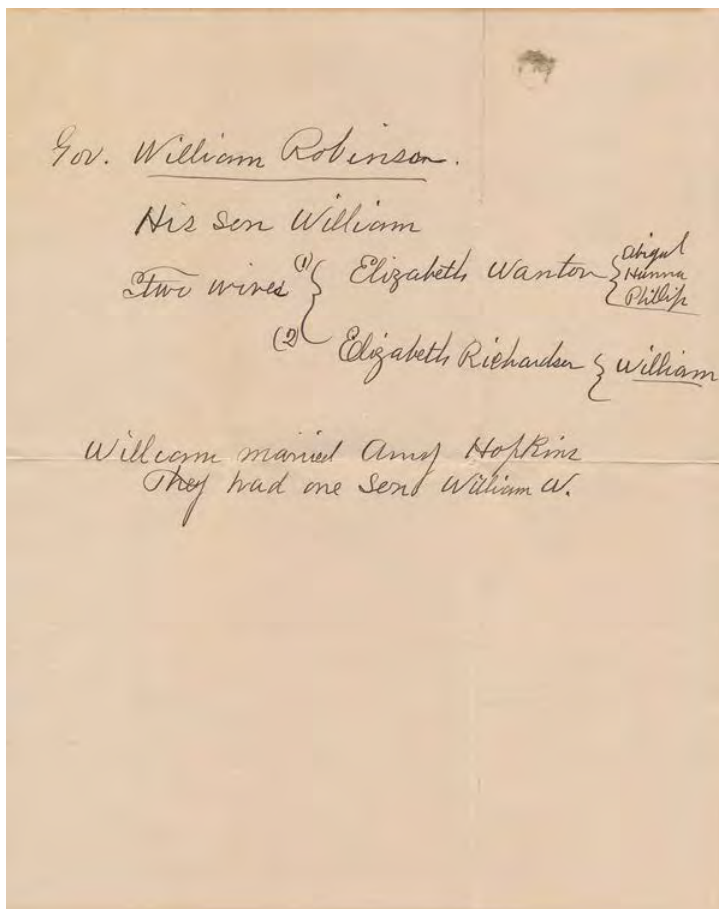 Gov. William Robinson.
His son William
Two wives
(1) Elizabeth Wanton
Abigal
Hanna
Phillip
(2) Elizabeth Richardson
William
William married Amy Hopkins
They had one son William W.